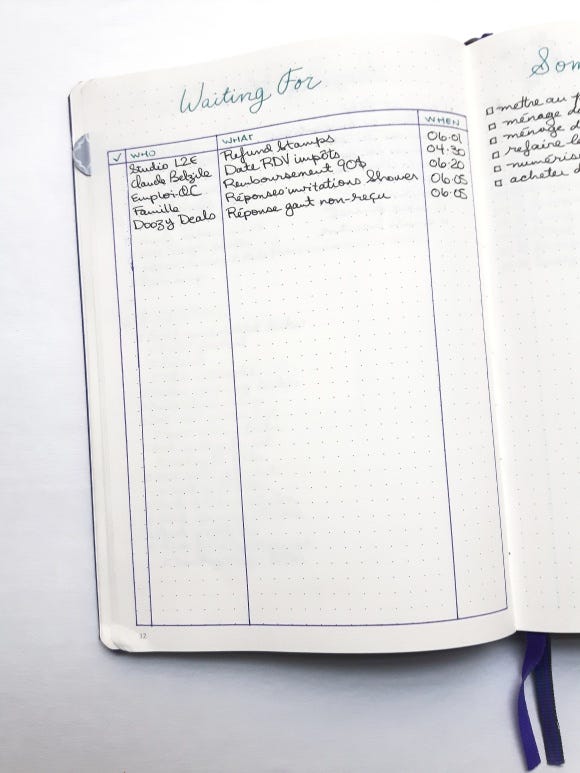 Waiting For
✓ WHO WHAT WHEN
Studio L2E Refund Stamps 06.01
Claude Belzile Date RDV impôts 04.30
Emploi QC Remboursement 90$ 06.20
Famille Réponses invitations Shower 06.05
Doozy Deals Réponse gant non-reçu 06.05
12
Som
mettre au
ménage d
ménage d
refaire l
numéris
acheter d